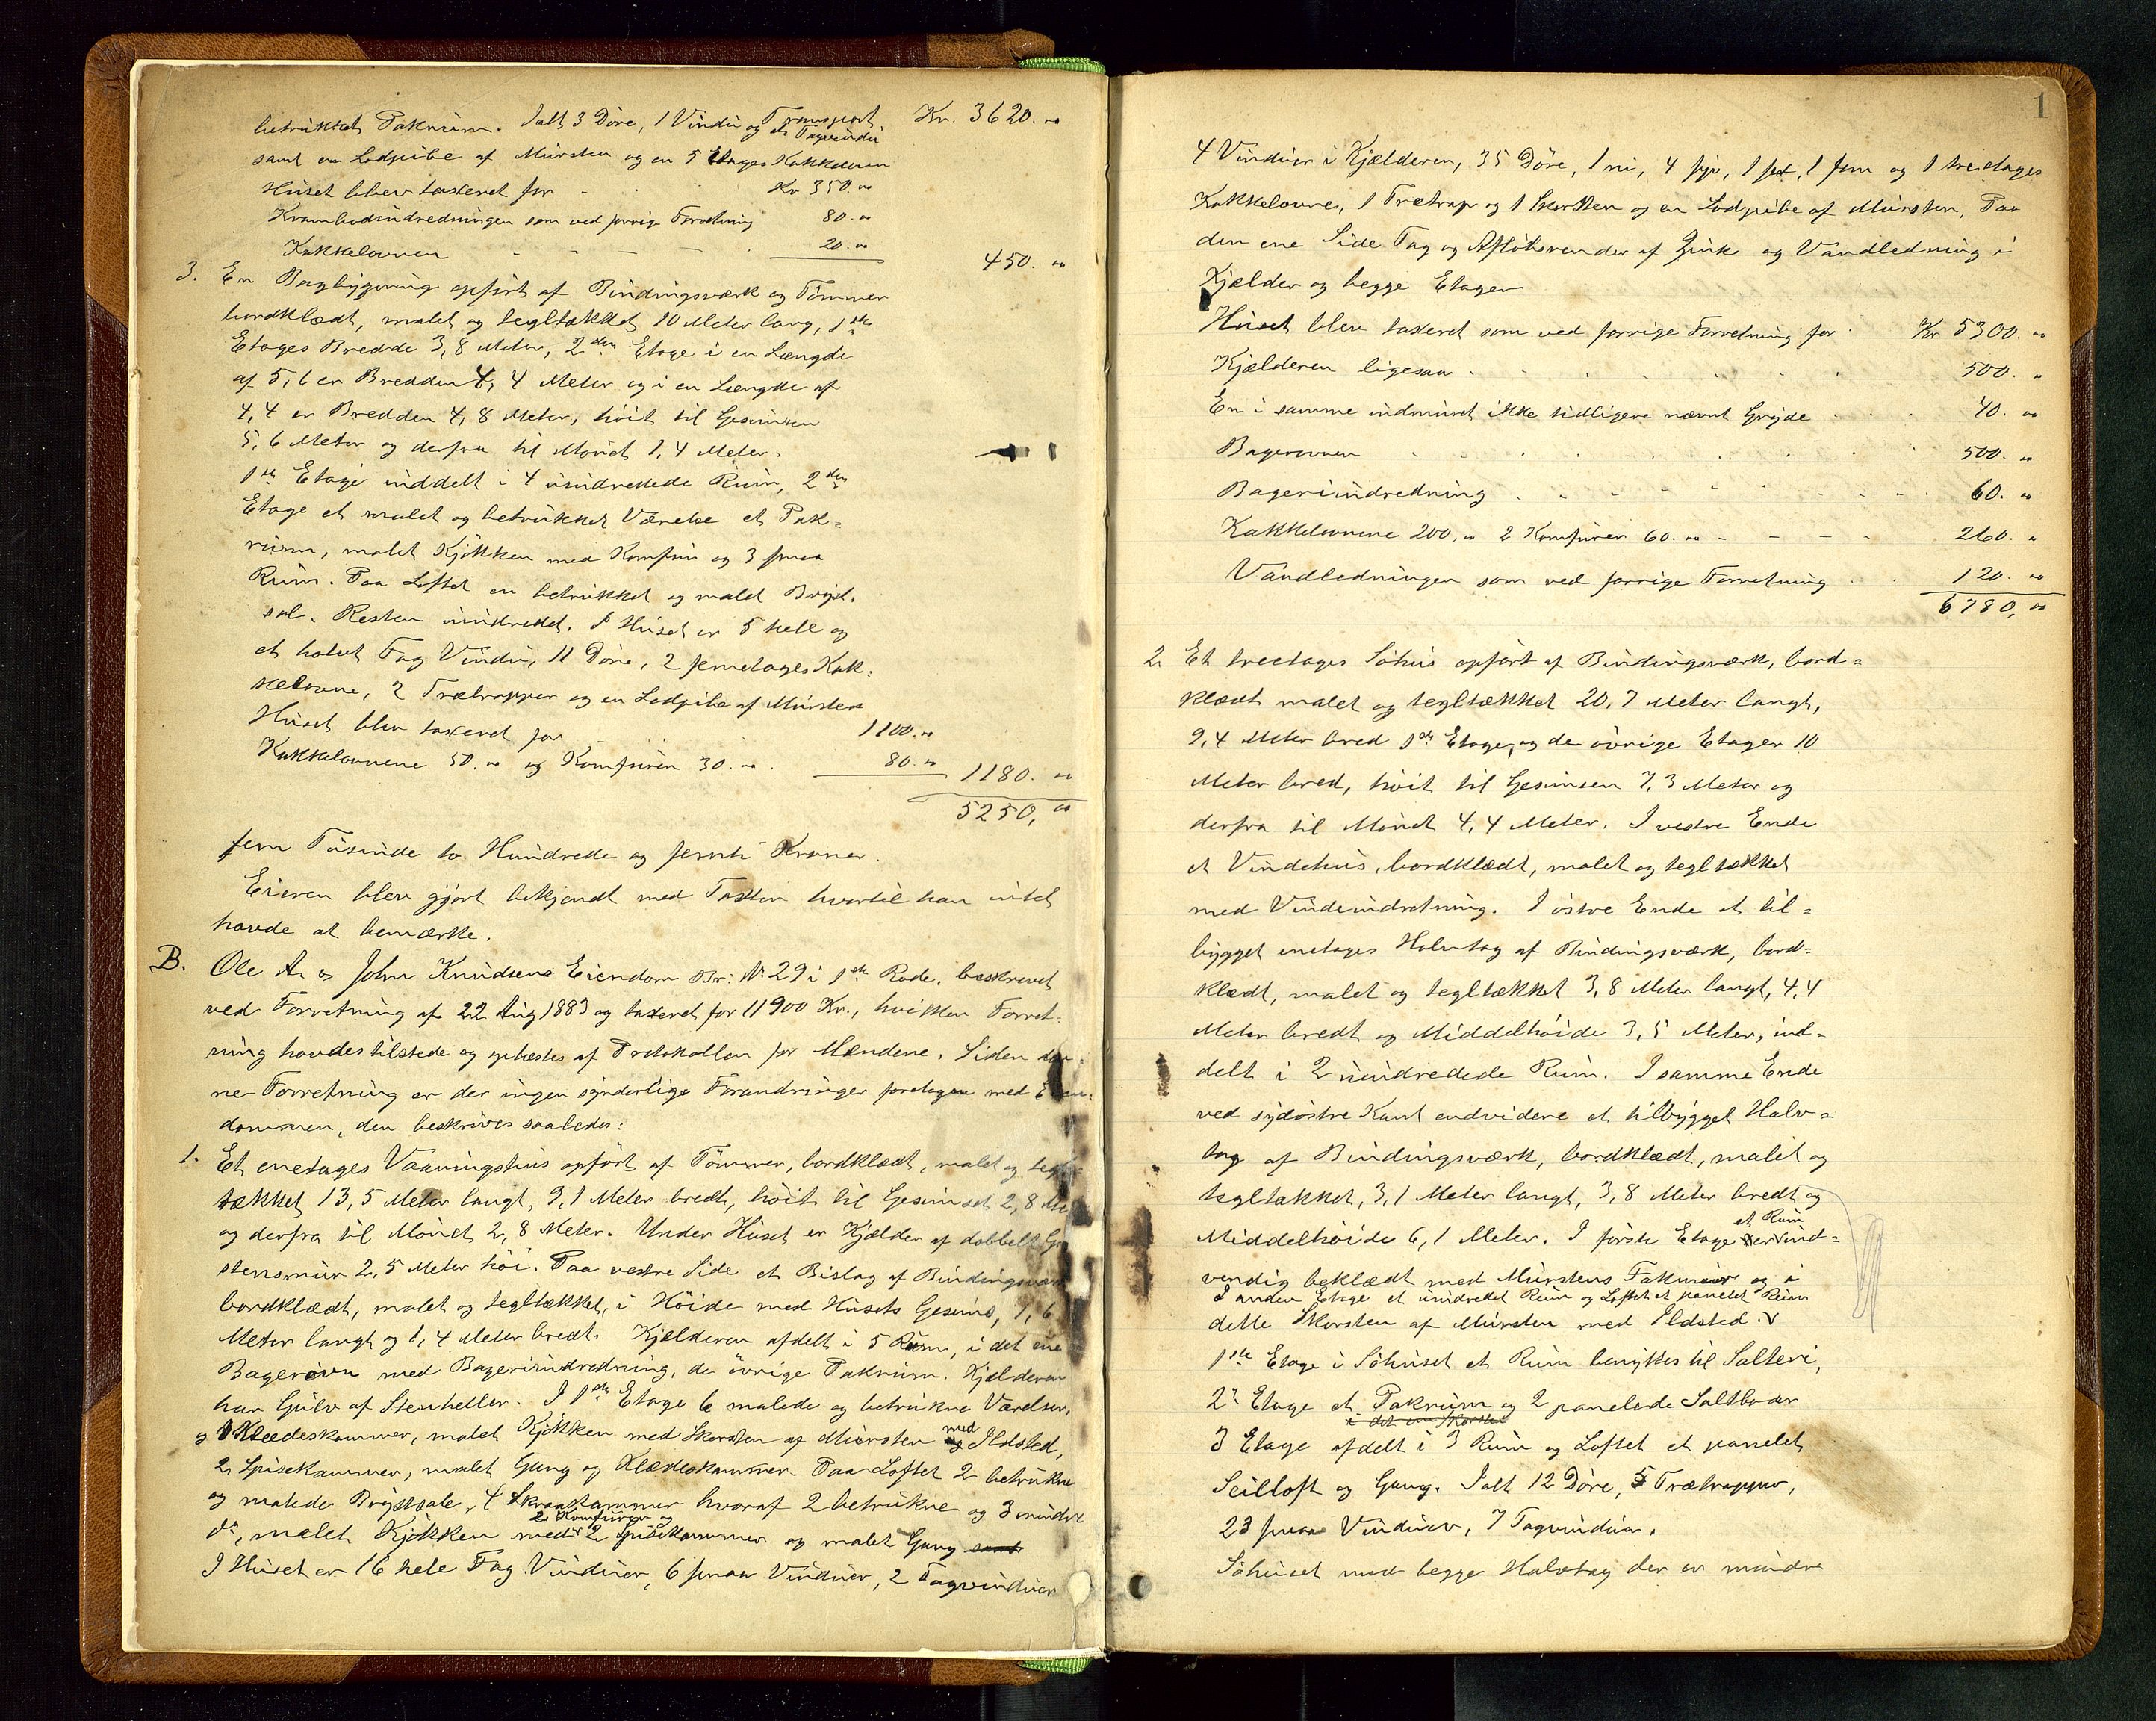 Transport Kr. 3620. "
betrukket Pakrum. Ialt 3 Döre, 1 Vindu og et Tagvindu
samt en Lodpibe af Mursten og en 5 Etages Kakkelovn
Huset blev taxeret for Kr 350. "
Krambodindredningen som ved forrige Forretning 80. "
Kakkelovnen 20. " 450. "
3. En Bagbygning opfört af Bindingsværk og Tömmer
bordklædt, malet og tegltækket 10 Meter lang, 1ste
Etages Bredde 3,8 Meter, 2den Etage i en Længde
af 5,6 er Bredden 4,4 Meter og i en Længde af
4,4 er Bredden 4,8 Meter, höit til Gesimsen
5,6 Meter og derfra til Mönet 1,4 Meter.
1ste Etage inddelt i 4 uindredede Rum, 2den
Etage et malet og betrukket Værelse et Pak=
rum, malet Kjökken med Komfur og 3 smaa
Rum. Paa Loftet en betrukket og malet Bryst=
sal. Resten uindredet. I Huset er 5 hele og
et halvt Fag Vindu, 11 Döre, 2 femetages Kak=
kelovne, 2 Trætrapper og en Lodpibe af Mursten
Huset blev taxeret for 1100. "
Kakkelovnene 50. " og Komfuren 30. " 80. " 1180. "
5250, "
fem Tusinde to Hundrede og femti Kroner.
Eieren blev gjort bekjendt med Taxten hvortil han intet
havde at bemærke.
B. Ole A. og John Knudsens Eiendom Br: No 29 i 1ste Rode, beskrevet
ved Forretning af 22 Aug 1883 og taxeret for 11900 Kr., hvilken Forret=
ning havdes tilstede og oplæstes af Protokollen for Mændene. Siden den=
ne Forretning er der ingen synderlige Forandringer foretagen med Eien=
dommen, den beskrives saaledes:
1. Et enetages Vaaningshus opfört af Tömmer, bordklædt, malet og tegl=
tækket 13,5 Meter langt, 9,1 Meter bredt, höit til Gesimset 2,8 Me
og derfra til Mönet 2,8 Meter. Under Huset er Kjælder af dobbelt Gra
stensmur 2,5 Meter höi. Paa vestre Side et Bislag af Bindingsværk
bordklædt, malet og tegltækket, i Höide med Husets Gesims, 1,6
Meter langt og 1,4 Meter bredt. Kjælderen afdelt i 5 Rum, i det ene
Bagerovn med Bageriindredning, de övrige Pakrum. Kjælderen
har Gulv af Stenheller. I 1ste Etage 6 malede og betrukne Værelser,
og 1 Klædeskammer, malet Kjökken med Skorsten af Mursten med Ildsted,
2 Spisekammer, malet Gang og Klædeskammer. Paa Loftet 2 betrukne
og malede Brystsale, 4 Skraakammer hvoraf 2 betrukne og 3 mindre
do, malet Kjökken med 2 Komfurer og 2 Spisekammer og malet Gang samt
I Huset er 16 hele Fag Vinduer, 6 smaa Vinduer, 2 Tagvinduer
1
4 Vinduer i Kjælderen, 35 Döre, 1 ni, 4 syv, 1 sex, 1 fem og 1 treetages
Kakkelovne, 1 Trætrap og 1 Skorsten og en Lodpibe af Mursten, Paa
den ene Side Tag og Aflöbsrender af Zink og Vandledning i
Kjælder og begge Etager
Huset blev taxeret som ved forrige Forretning for Kr 5300. "
Kjælderen ligesaa 500. "
En i samme indmuret ikke tidligere nævnt Gryde 40. "
Bagerovnen 500. "
Bageriindredning 60. "
Kakkelovnene 200, " 2 Komfurer 60. " 260. "
Vandledningen som ved forrige Forretning 120. "
6780, "
2. Et treetages Söhus opfört af Bindingsværk, bord=
klædt malet og tegltækket 20,7 Meter langt,
9,4 Meter bred 1ste Etage, og de övrige Etager 10
Meter bred, höit til Gesimsen 7,3 Meter og
derfra til Mönet 4,4 Meter. I vestre Ende
et Vindehus, bordklædt, malet og tegltækket
med Vindeindretning. I östre Ende et til=
bygget enetages Halvtag af Bindingsværk, bord=
klædt, malet og tegltækket 3,8 Meter langt, 4,4
Meter bredt og Middelhöide 3,5 Meter, ind=
delt i 2 uindredede Rum. I samme Ende
ved sydöstre Kant endvidere et tilbygget Halv=
tag af Bindingsværk, bordklædt, malet og
tegltækket, 3,1 Meter langt, 3,8 Meter bredt og
Middelhöide 6,1 Meter. I förste Etage er et Rum ind=
vendig beklædt med Murstens Fakmur og i
I anden Etage et uindredet Rum og Loftet et panelet Rum
dette Skorsten af Mursten med Ildsted. v
1ste Etage i Söhuset et Rum benyttes til Salteri,
2n Etage et Pakrum og 2 panelede Saltboder
i det ene Skorsten
3 Etage afdelt i 3 Rum og Loftet et panelet
Seilloft og Gang. Ialt 12 Döre, 5 Trætrapper,
23 smaa Vinduer, 7 Tagvinduer.
Söhuset med begge Halvtag der er mindre